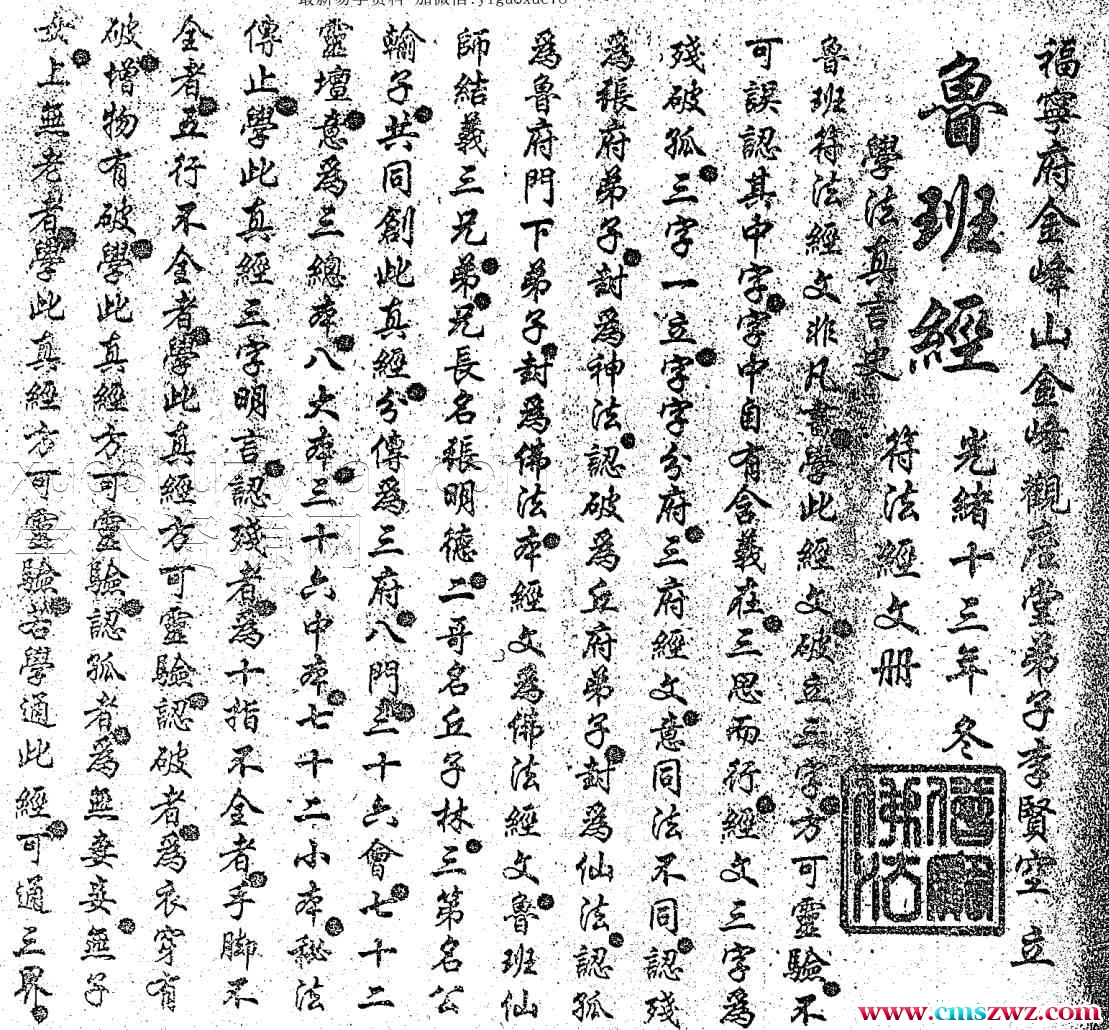 最新易学资料 加微信:yiguoxue78
福寧府金峰山金峰觀座堂弟子李賢空立
魯班經 光緒十三年冬
學法真言史 符法經文冊
魯班符法經文非凡書學此經文破立三字方可靈驗不
可誤認其中字字中自有含義在三思而行經文三字為
殘破孤三字一立字字分府三府經文意同法不同認殘
為張府弟子封為神法認破為丘府弟子封為仙法認孤
為魯府門下弟子封為佛法本經文為佛法經文魯班仙
師結義三兄弟兄長名張明德二哥名丘子林三第名公
輸子共同創此真經分傳為三府八門三十六會七十二
靈壇意為三總本八大本三十六中本七十二小本秘法
傳止學此真經三字明言認殘者為十指不全者手脚不
全者五行不全者學此真經方可靈驗認破者為衣穿有
破增物有破學此真經方可靈驗認孤者為無妾妾無子
上無老者學此真經方可靈驗若學通此經可通三界
www.cmszwz.com